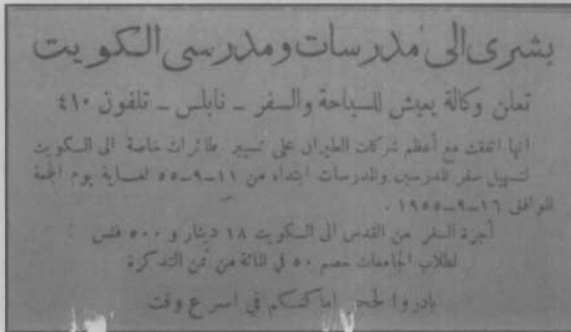 بشرى الى مدرسات ومدرسي الكويت
تعلن وكالة يعيش للسياحة والسفر ــ نابلس ــ تلفون ٤١٠
انها اتفقت مع أعظم شركات الطيران على تسيير طائرات خاصة الى الكويت
لتسهيل سفر المدرسين والمدرسات ابتداء من ١١–٩–٥٥ لغاية يوم الجمعة
الموافق ١٦–٩–١٩٥٥ .
أجرة السفر من القدس الى الكويت ١٨ دينار و ٥٠٠ فلس :
لطلاب الجامعات خصم ٥٠ في المائة من ثمن التذكرة
بادروا لحجز اماكنكم في اسرع وقت